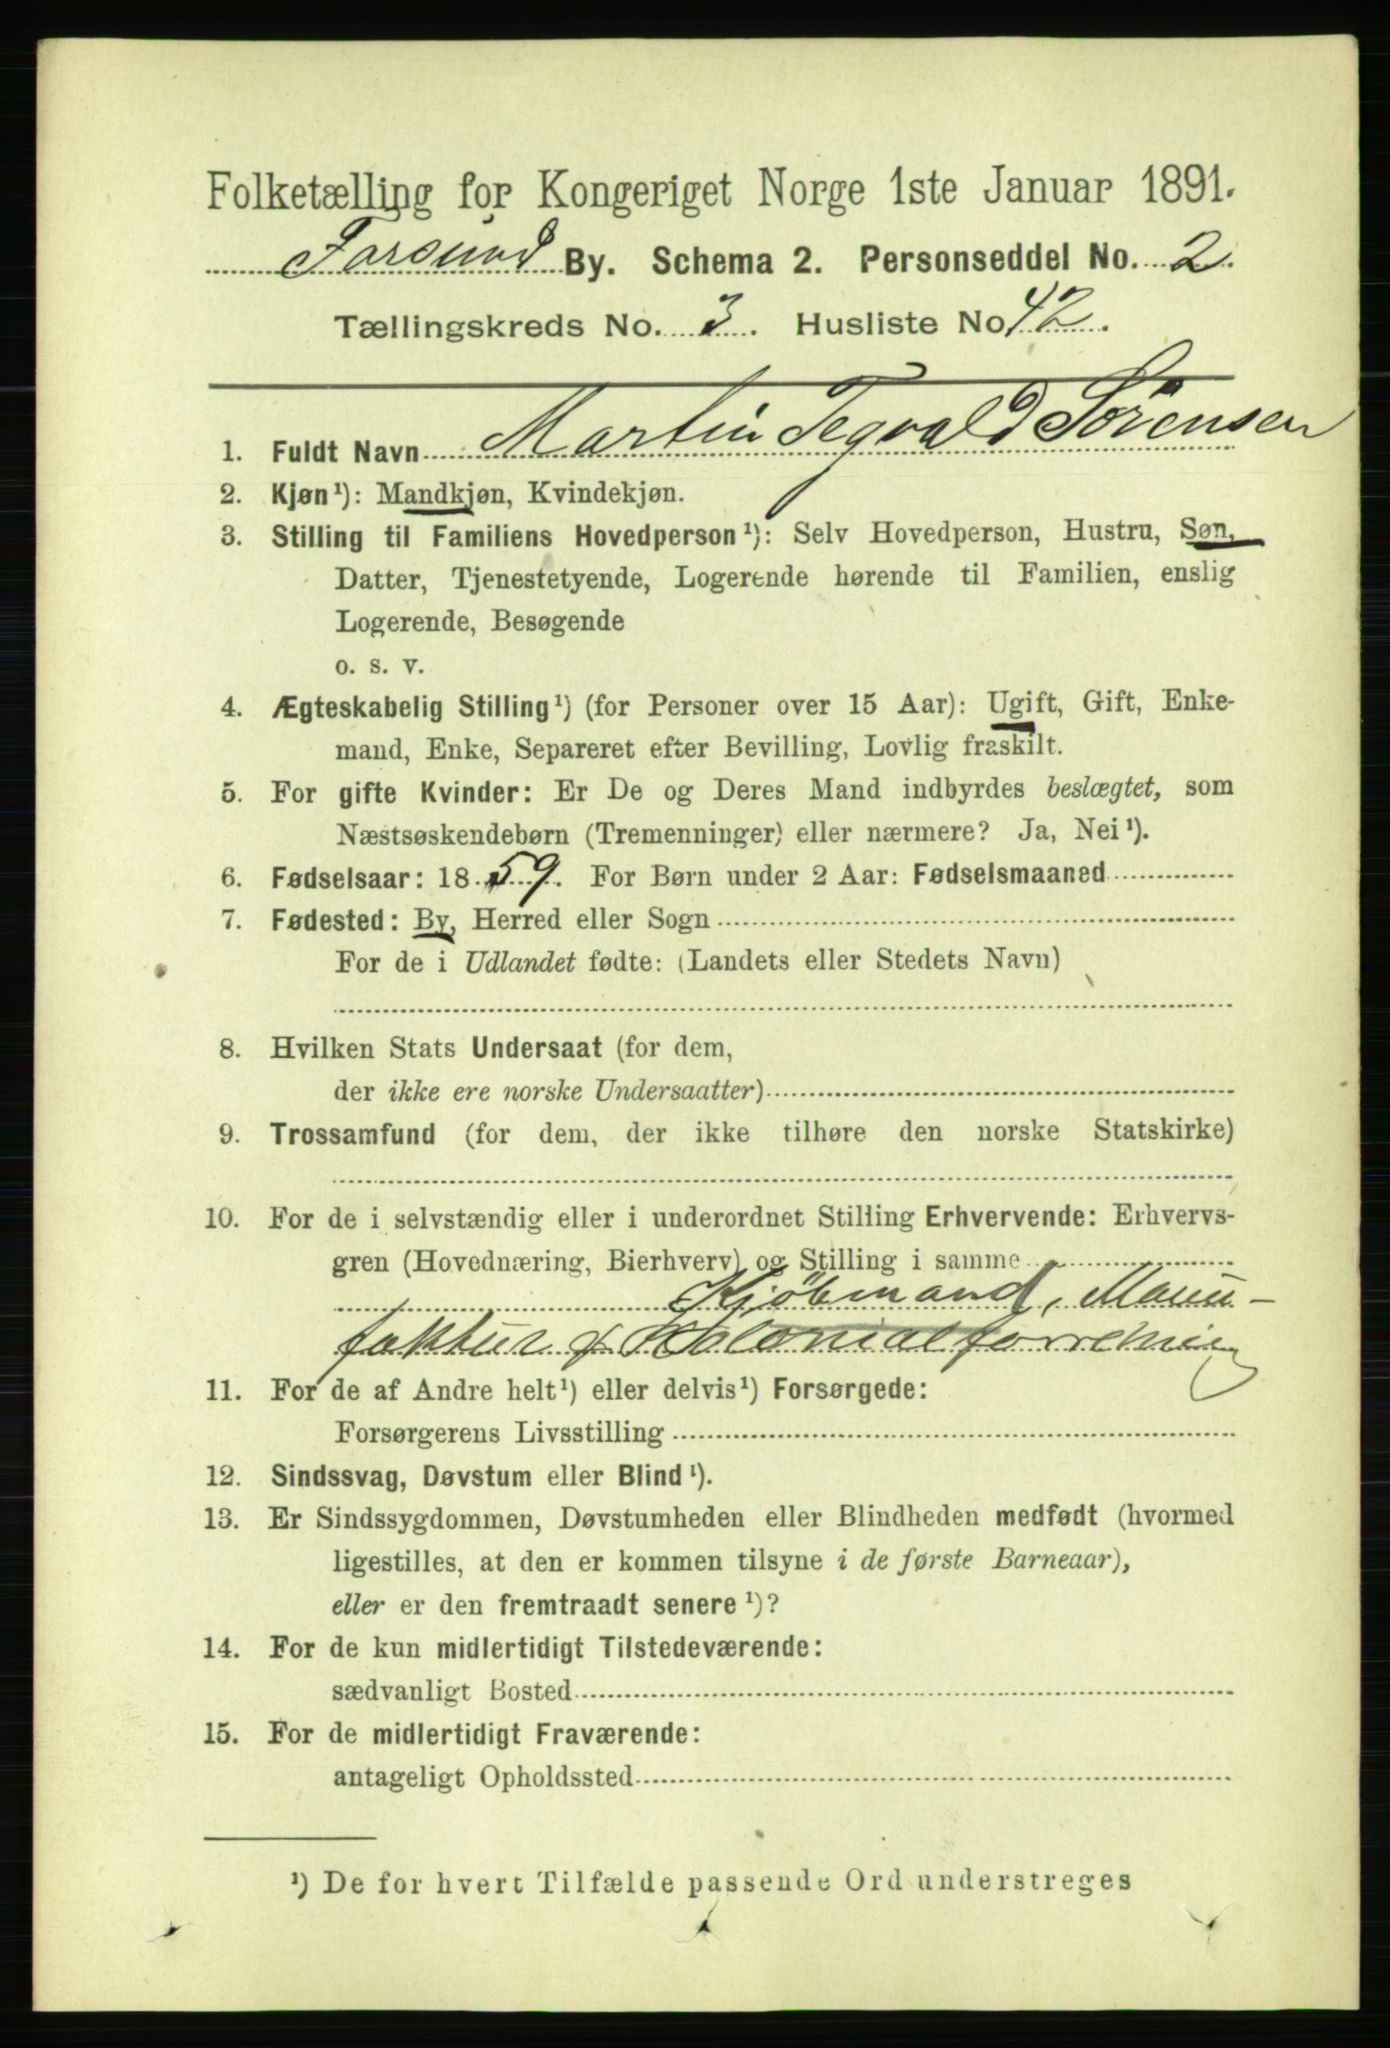 Folketælling for Kongeriget Norge 1ste Januar 1891.
Farsund By. Schema 2. Personseddel No. 2.
Tællingskreds No. 3. Husliste No 42.
1. Fuldt Navn Martin Tegvald Sörensen
2. Kjøn¹): Mandkjøn, Kvindekjøn.
3. Stilling til Familiens Hovedperson¹): Selv Hovedperson, Hustru, Søn,
Datter, Tjenestetyende, Logerende hørende til Familien, enslig
Logerende, Besøgende
o. s. v.
4. Ægteskabelig Stilling¹) (for Personer over 15 Aar): Ugift, Gift, Enke-
mand, Enke, Separeret efter Bevilling, Lovlig fraskilt.
5. For gifte Kvinder: Er De og Deres Mand indbyrdes beslægtet, som
Næstsøskendebørn (Tremenninger) eller nærmere? Ja, Nei¹).
6. Fødselsaar: 1859. For Børn under 2 Aar: Fødselsmaaned
7. Fødested: By, Herred eller Sogn
For de i Udlandet fødte: (Landets eller Stedets Navn)
8. Hvilken Stats Undersaat (for dem,
der ikke ere norske Undersaatter)
9. Trossamfund (for dem, der ikke tilhøre den norske Statskirke)
10. For de i selvstændig eller i underordnet Stilling Erhvervende: Erhvervs-
gren (Hovednæring, Bierhverv) og Stilling i samme
Kjöbmand, Manu-
faktur & Kolonialforretning
11. For de af Andre helt¹) eller delvis¹) Forsørgede:
Forsørgerens Livsstilling
12. Sindssvag, Døvstum eller Blind¹).
13. Er Sindssygdommen, Døvstumheden eller Blindheden medfødt (hvormed
ligestilles, at den er kommen tilsyne i de første Barneaar),
eller er den fremtraadt senere¹)?
14. For de kun midlertidigt Tilstedeværende:
sædvanligt Bosted
15. For de midlertidigt Fraværende:
antageligt Opholdssted
¹) De for hvert Tilfælde passende Ord understreges